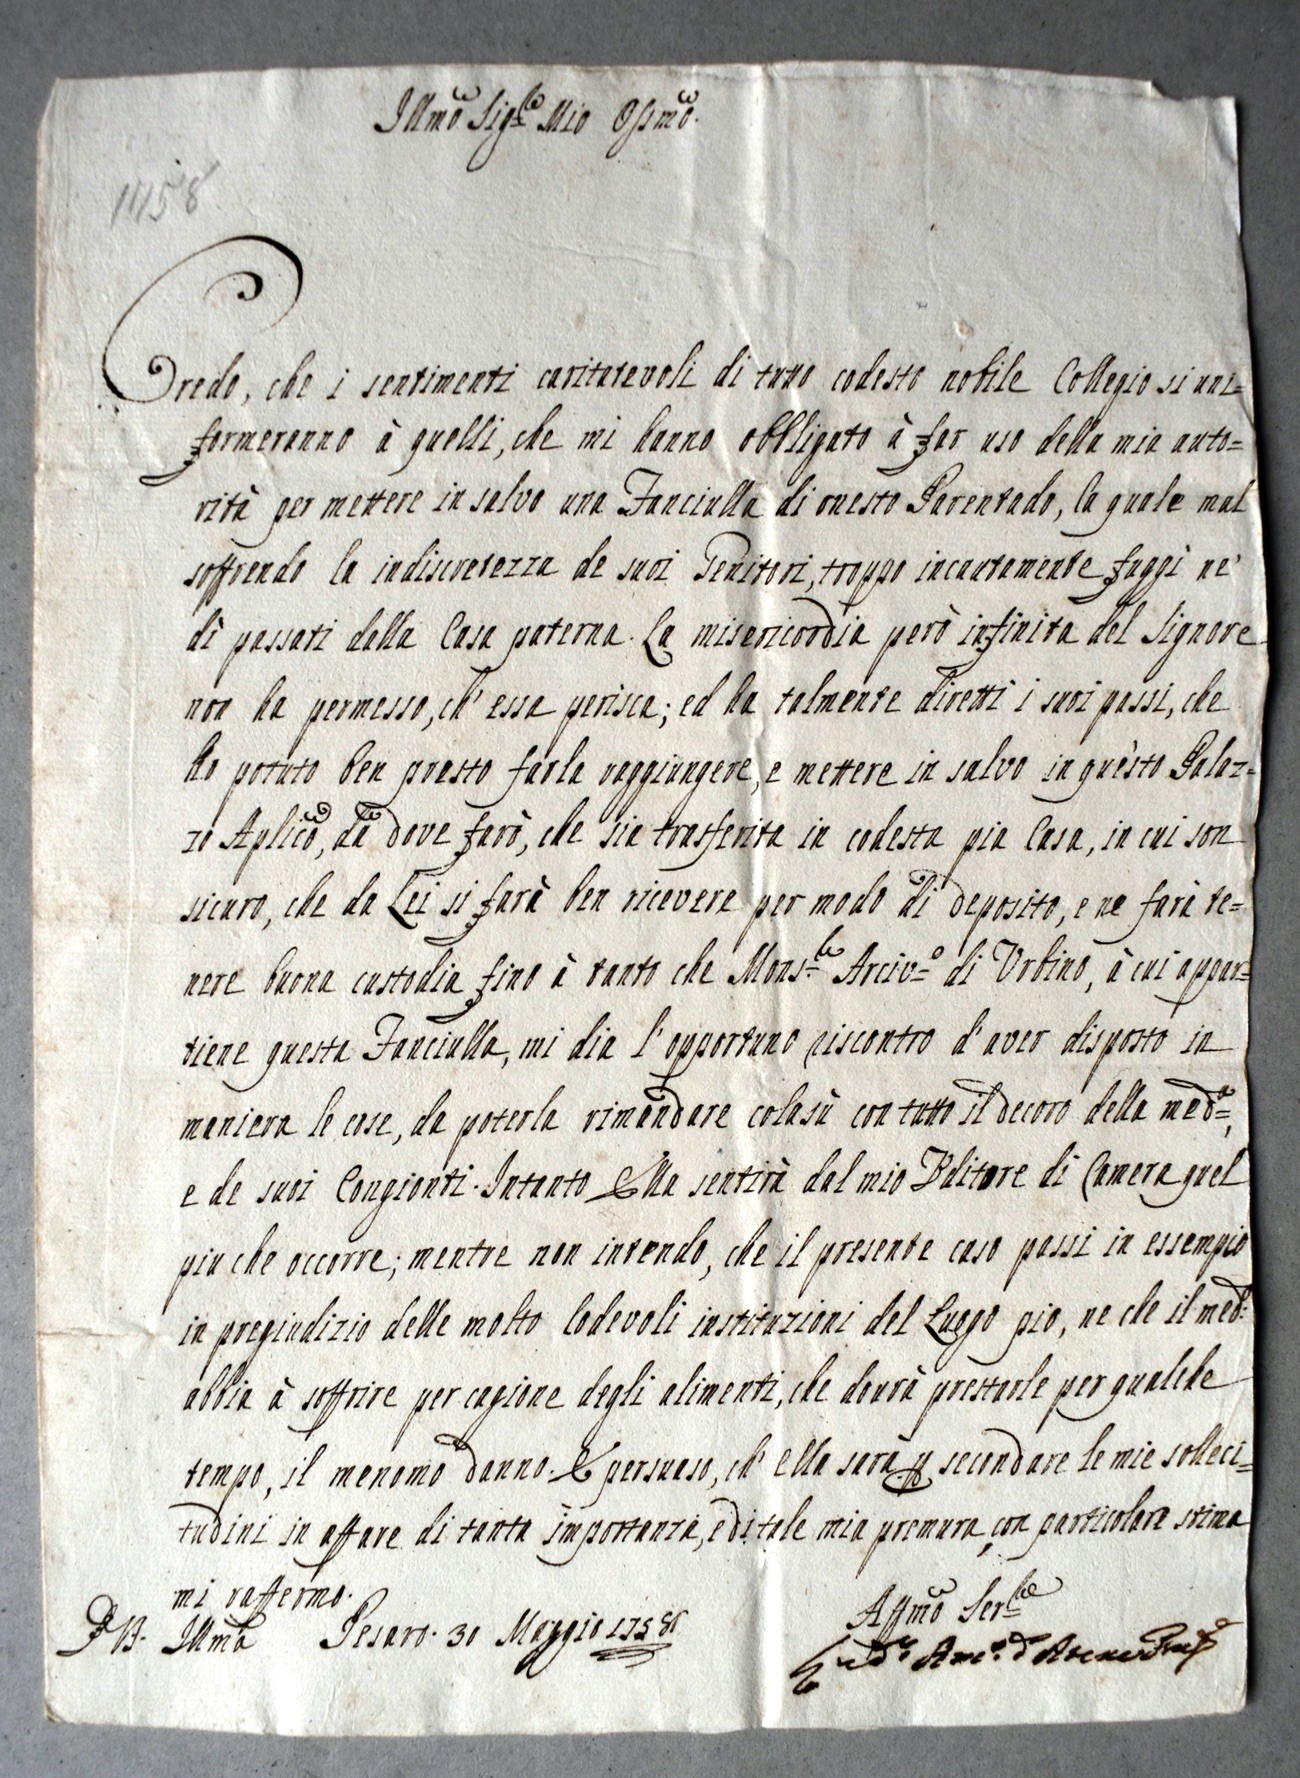 Illmō Sigre Mio Ossmō.
1758
Credo, che i sentimenti caritatevoli di tutto codesto nobile Collegio si uni=
formeranno à quelli, che mi hanno obbligato à far uso della mia auto=
rità per mettere in salvo una Fanciulla di onesto Parentado, la quale mal
soffrendo la indiscretezza de suoi Genitori, troppo incautamente fuggì ne'
dì passati dalla Casa paterna. La misericordia però infinita del Signore
non ha permesso, ch' essa perisca; ed ha talmente diretti i suoi passi, che
ho potuto ben presto farla raggiungere, e mettere in salvo in questo Palaz=
zo Aplicō, da dove farò, che sia trasferita in codesta pia Casa, in cui son
sicuro, che da Lei si farà ben ricevere per modo di deposito, e ne farà te=
nere buona custodia fino à tanto che Monsre Arcivo di Urbino, à cui appar=
tiene questa Fanciulla, mi dia l'opportuno riscontro d'aver disposto in
maniera le cose, da poterla rimandare colasù con tutto il decoro della meda,
e de suoi Congionti. Intanto Ella sentirà dal mio Uditore di Camera quel
piu che occorre; mentre non intendo, che il presente caso passi in essempio
in pregiudizio delle molto lodevoli instituzioni del Luogo pio, ne che il med:
abbia à soffrire per cagione degli alimenti, che dovrà prestarle per qualche
tempo, il menomo danno. E persuaso, ch' Ella sarà p secondare le mie solleci=
tudini in affare di tanta importanza, e di tale mia premura, con particolare stima
mi raffermo.
D V. Illmā Pesaro. 30 Maggio 1758
Affmō Serre